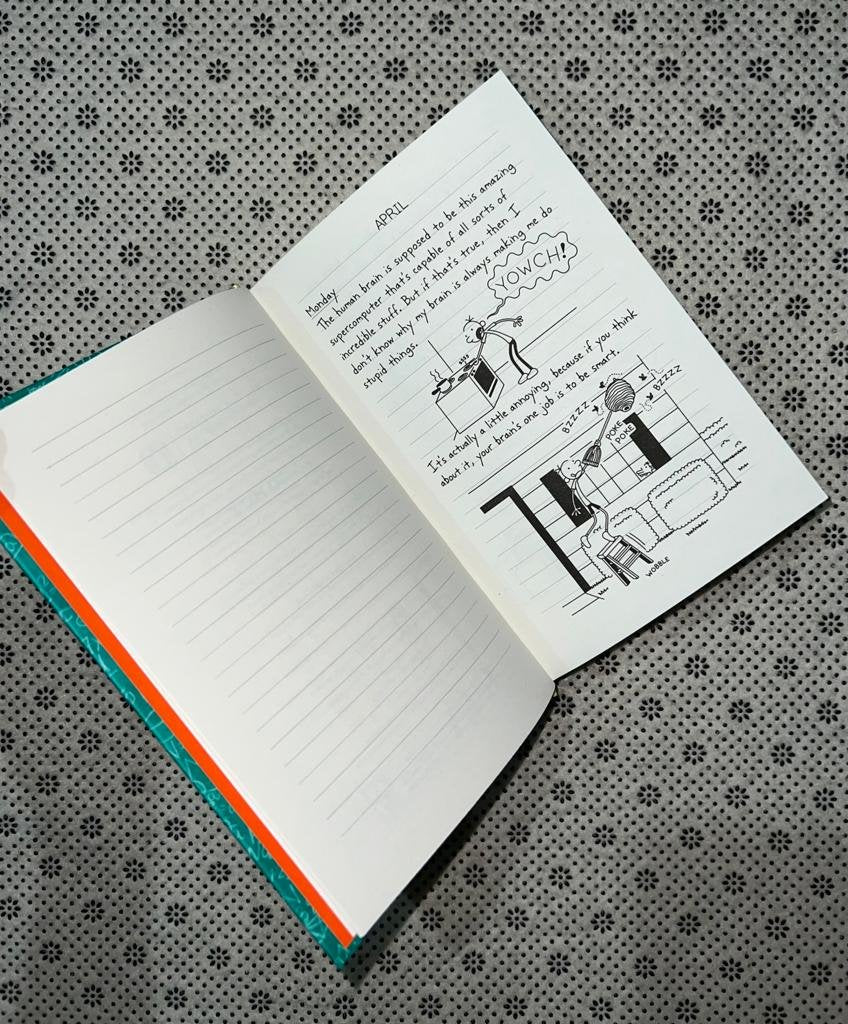 APRIL
Monday
The human brain is supposed to be this amazing
supercomputer that's capable of all sorts of
incredible stuff. But if that's true, then I
don't know why my brain is always making me do
stupid things.
YOWCH!
It's actually a little annoying, because if you think
about it, your brain's one job is to be smart.
BZZZZ
BZZZZ
POKE
POKE
WOBBLE